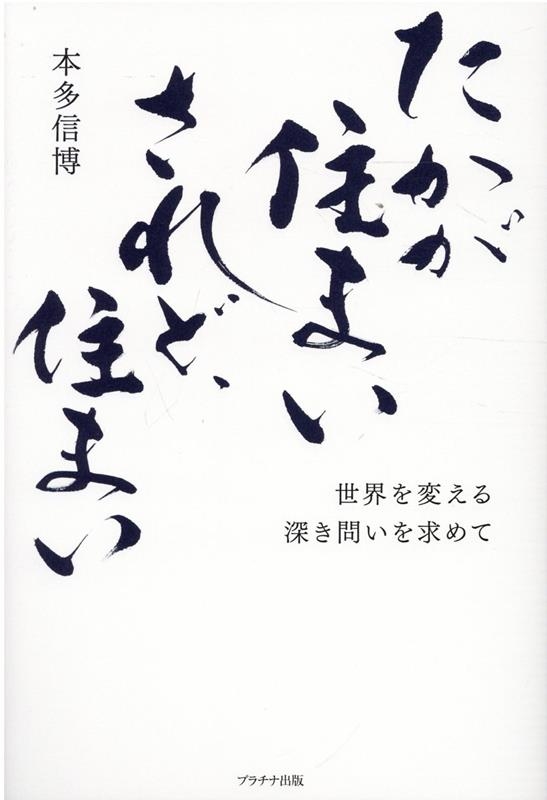 たかが
住まい
されど、
住まい
本多信博
世界を変える
深き問いを求めて
プラチナ出版